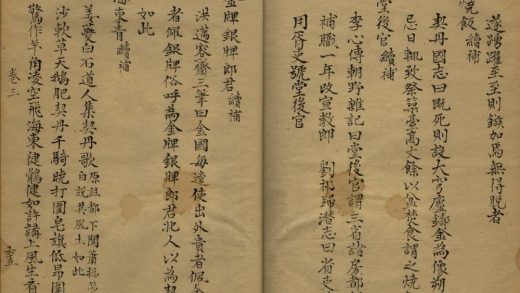 遂踴躍至至則鏃加焉無得脫者
燒飯 續補
契丹國志曰既死則設大穹廬鑄金為像朔
忌日輒致祭築臺高丈餘以盆焚食謂之燒
堂後官 續補
李心傳朝野雜記曰堂後官謂三省諸房都
補職一年改宣教郎 劉祁歸潛志曰省吏
用胥吏號堂後官
金牌銀牌郎君 續補
洪邁容齋三筆曰金國每遣使出外貴者佩金
者佩銀牌俗呼為金牌銀牌郎君北人以為契
如此
海東青 續補
姜夔白石道人集契丹歌 原註都下聞蕭總
自說其風土如此
沙軟草天鵝肥契丹千騎曉打圍皂旗低昂圍
驚作羊角凌空飛海東健鶻健如許韝上風生看
卷三